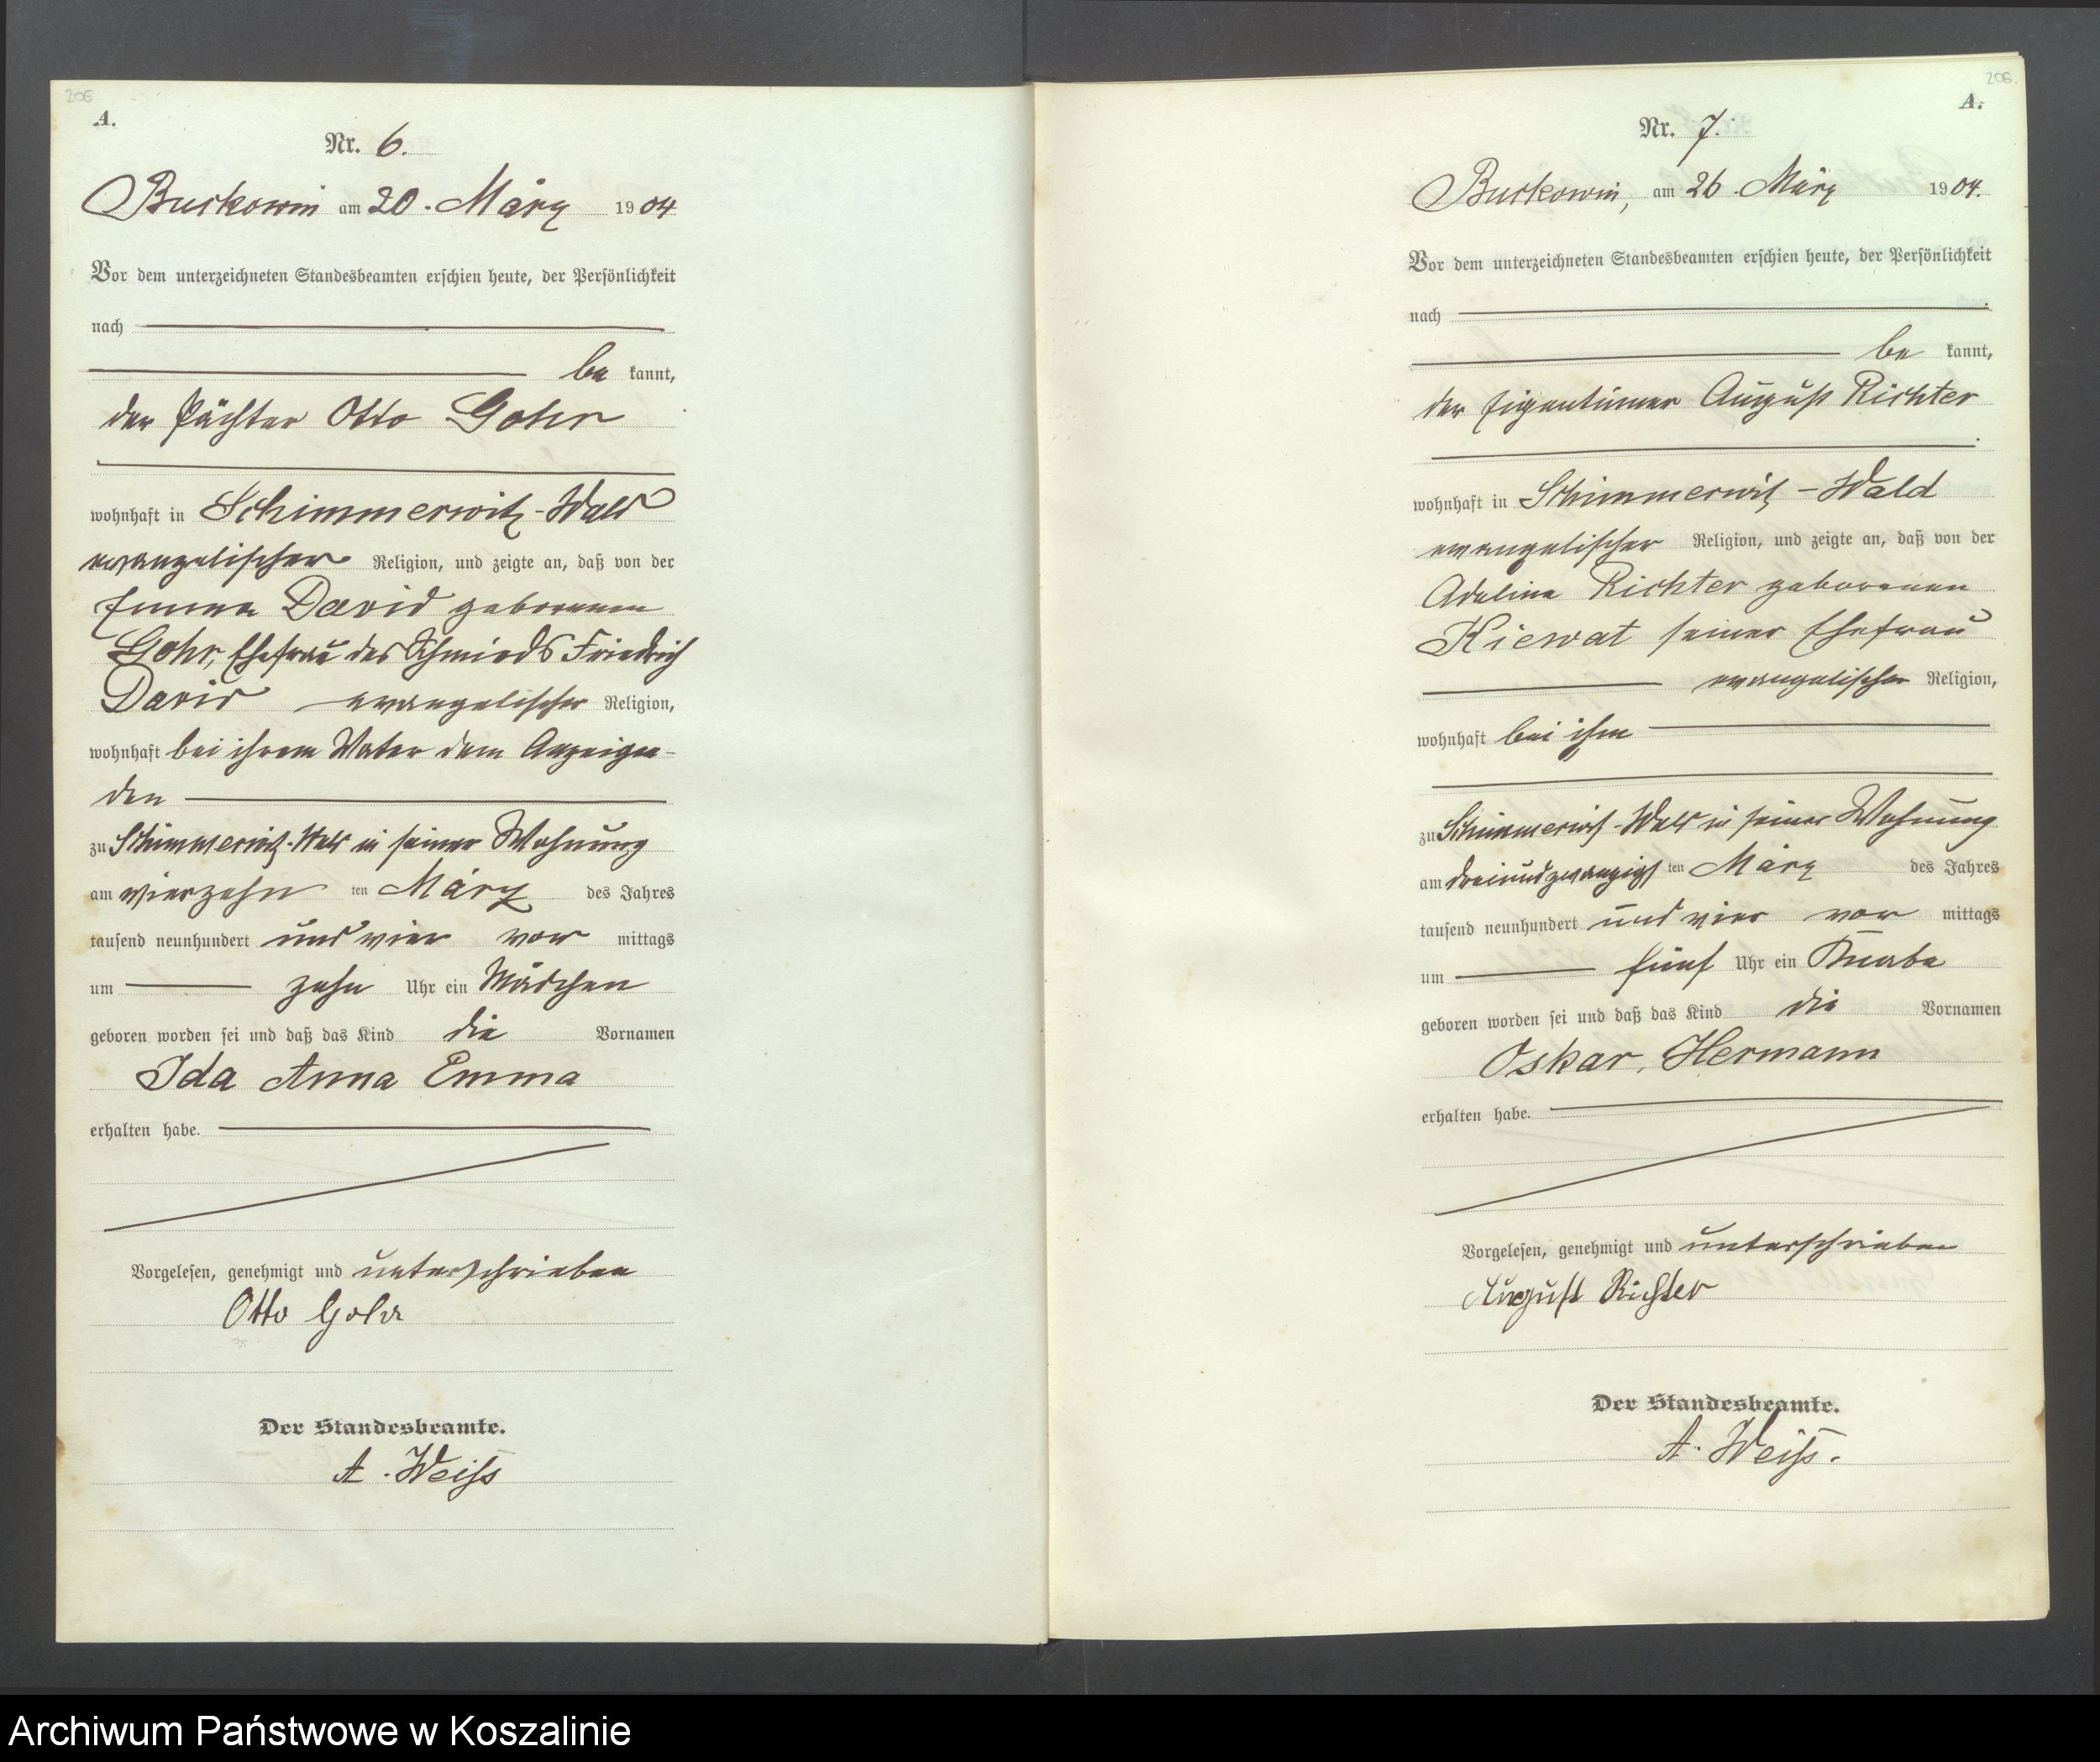 206
A.
Nr. 6.
Buckowin am 20. März 1904
Vor dem unterzeichneten Standesbeamten erschien heute, der Persönlichkeit
nach
be kannt,
der Pächter Otto Gohr
wohnhaft in Schimmerwitz-Wald
evangelischer Religion, und zeigte an, daß von der
Emma David geborenen
Gohr, Ehefrau des Schmieds Friedrich
David evangelischer Religion,
wohnhaft bei ihrem Vater dem Anzeigen-
den
zu Schimmerwitz-Wald in seiner Wohnung
am vierzehn ten März des Jahres
tausend neunhundert und vier vor mittags
um zehn Uhr ein Mädchen
geboren worden sei und daß das Kind die Vornamen
Ida Anna Emma
erhalten habe.
Vorgelesen, genehmigt und unterschrieben
Otto Gohr
Der Standesbeamte.
A. Weiß
206.
A.
Nr. 7.
Buckowin, am 26. März 1904.
Vor dem unterzeichneten Standesbeamten erschien heute, der Persönlichkeit
nach
be kannt,
der Eigentümer August Richter
wohnhaft in Schimmerwitz-Wald
evangelischer Religion, und zeigte an, daß von der
Adeline Richter geborenen
Kiewat seiner Ehefrau
evangelischer Religion,
wohnhaft bei ihm
zu Schimmerwitz-Wald in seiner Wohnung
am dreiundzwanzigs ten März des Jahres
tausend neunhundert und vier vor mittags
um fünf Uhr ein Knabe
geboren worden sei und daß das Kind die Vornamen
Oskar, Hermann
erhalten habe.
Vorgelesen, genehmigt und unterschrieben
August Richter
Der Standesbeamte.
A. Weiß.
Archiwum Państwowe w Koszalinie